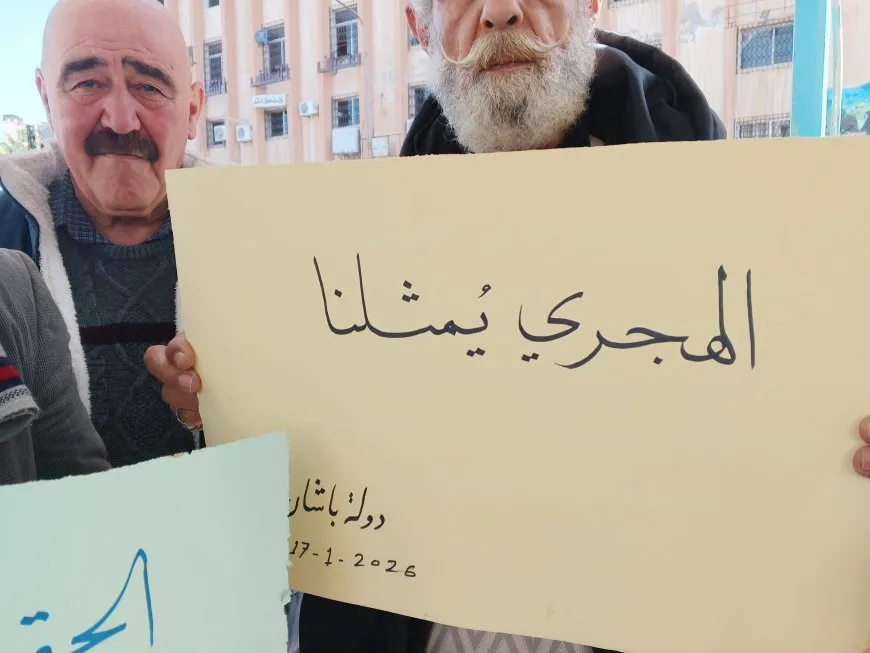 الهجري يُمثلنا
دولة باشان
17-1-2026
الحق